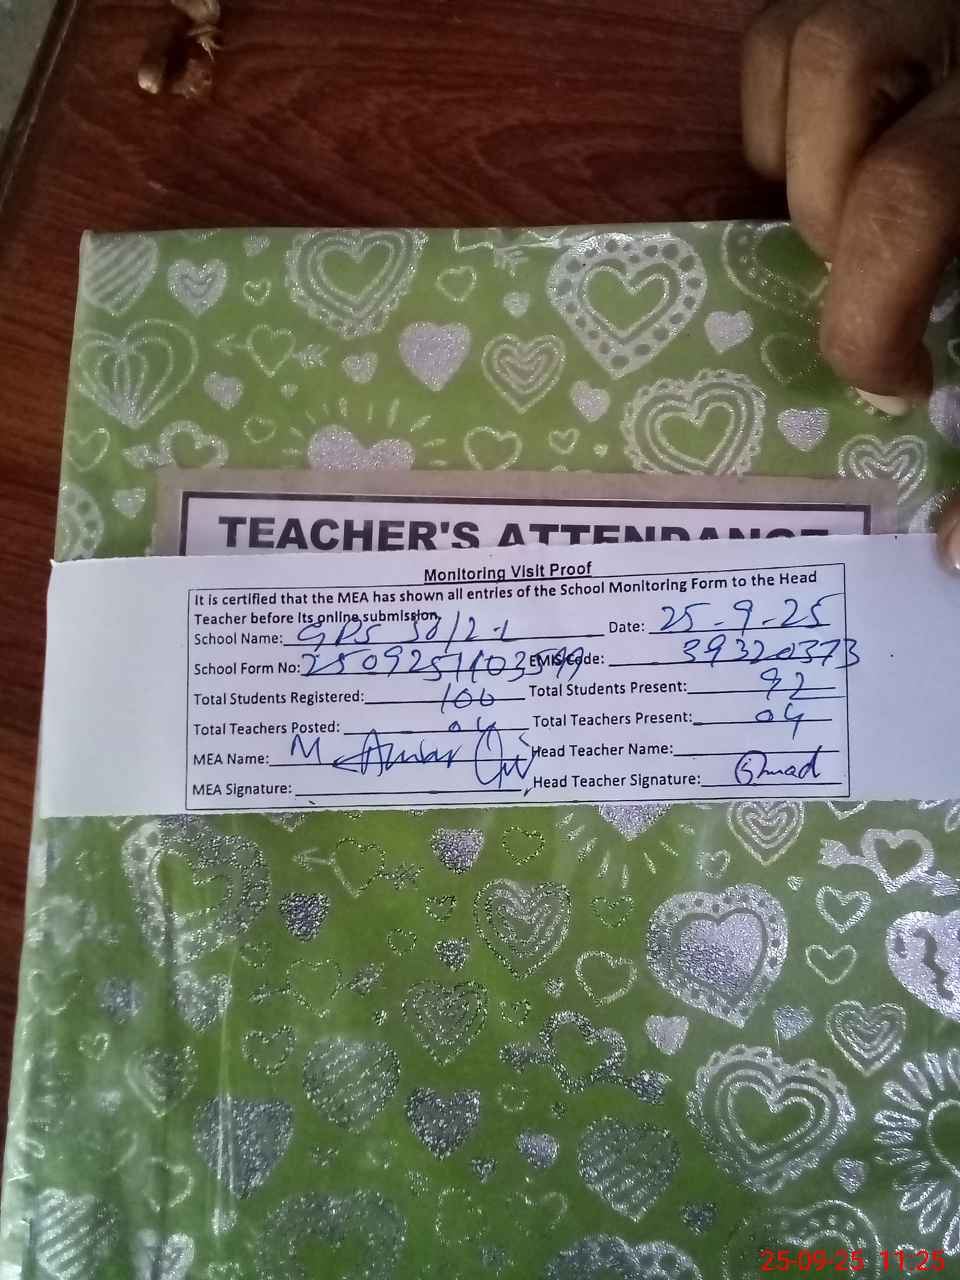 TEACHER'S ATTENDANCE
Monitoring Visit Proof
It is certified that the MEA has shown all entries of the School Monitoring Form to the Head
Teacher before Its online submission.
School Name: GPS 50/2-L Date: 25-9-25
School Form No: EMIS Code: 39320373
Total Students Registered: 100 Total Students Present: 92
Total Teachers Posted: 04 Total Teachers Present: 04
MEA Name: M Head Teacher Name:
MEA Signature: Head Teacher Signature:
25-09-25 11:25